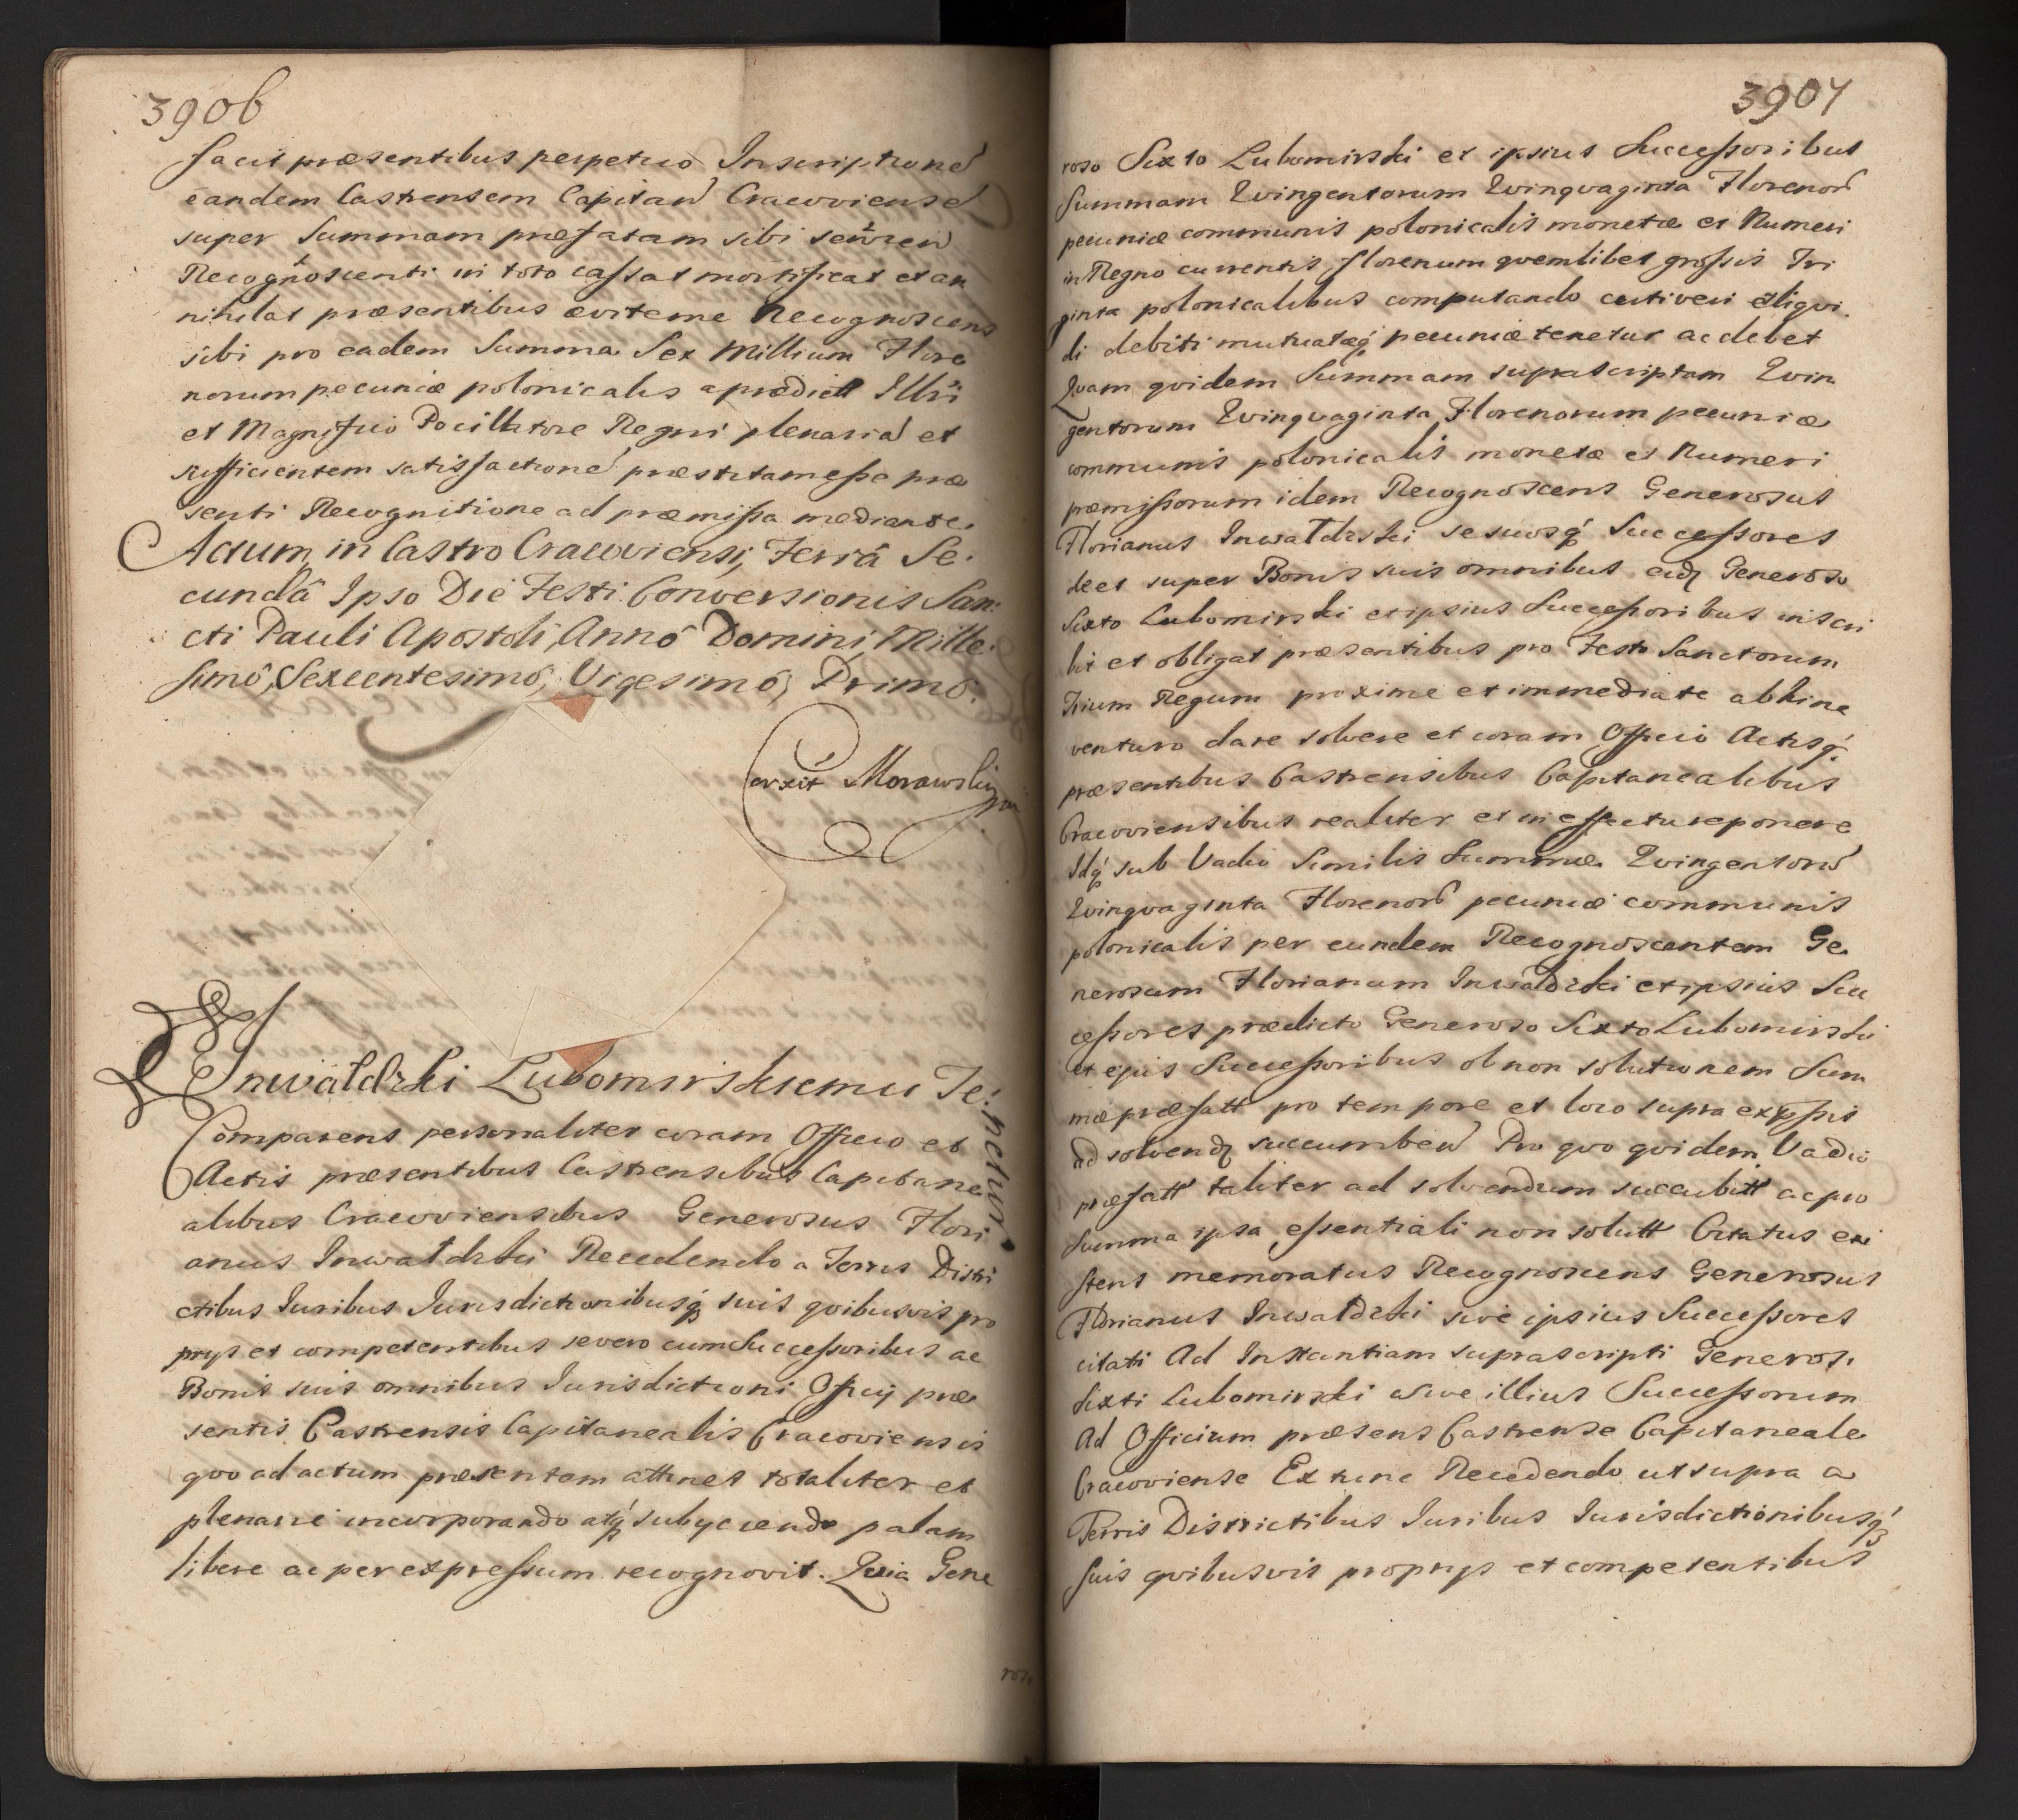 3906
facit præsentibus perpetuo Inscriptione
eandem Castrensem Capitan Cracoviense
super Summam præfatam sibi
Recognoscenti in toto cassat mortificat et an
nihilat præsentibus æviterne Recognoscens
sibi pro eadem Summa Sex Millium Flore
norum pecuniæ polonicalis a prædicтt Illri
et Magnifico Pocillatore Regni plenaria et
sufficientem satisfactione præstitam esse præ
senti Recognitione ad præmissa mediante.
Actum in Castro Cracoviensi, Feriâ Se
cundâ Ipso Die Festi Conversionis San
cti Pauli Apostoli, Annô Domini, Mille
simô, Sexcentesimô, Vigesimô, Primô.
Corxit Morawski
Inwałdzki Lubomirskiemu Te
netur
Comparens personaliter coram Officio et
Actis præsentibus Castrensibus Capitane
alibus Cracoviensibus Generosus Flori
anus Inwałdzki Recedendo a Terris Distri
ctibus Iuribus Iurisdictionibusq suis qvibusvis pro
prys et competentibus se vero cum Successoribus ac
Bonis suis omnibus Iurisdictioni Officy præ
sentis Castrensis Capitanealis Cracoviensis
qvo ad actum præsentem attinet totaliter et
plenarie incorporando atq subyciendo palam
libere ac per expressum recognovit. Qvia Gene
roso
3907
roso Sixto Lubomirski et ipsius Successoribus
Summam Qvingentorum Qvinqvaginta Floreno
pecuniæ communis polonicalis monetæ et Numeri
in Regno currentis florenum qvemlibet grossis Tri
ginta polonicalibus computando certi veri et liqvi
di debiti mutuatæq pecuniæ tenetur ac debet
Qvam qvidem Summam suprascriptam Qvin
gentorum Qvinqvaginta Florenorum pecuniæ
communis polonicalis monetæ et Numeri
præmissorum idem Recognoscens Generosus
Florianus Inwałdzki se suosq Successores
de et super Bonis suis omnibus eid Generoso
Sixto Lubomirski et ipsius Successoribus inscri
bit et obligat præsentibus pro Festo Sanctorum
Trium Regum proxime et immediate abhinc
venturo dare solvere et coram Officio Actisq
præsentibus Castrensibus Capitanealibus
Cracoviensibus realiter et in effectu reponere
Idq sub Vadio Similis Summæ Qvingentoru
Qvinqvaginta Floreno pecuniæ communis
polonicalis per eundem Recognoscentem Ge
nerosum Florianum Inwałdzki et ipsius Suc
cessores prædicto Generoso Sixto Lubomirski
et ejus Successoribus ob non solutionem Sum
mæ præfatt pro tempore et loco supra expssis
ad solvend succumben Pro qvo qvidem Vadio
præfatt taliter ad solvendum succubitt ac pro
Summa ipsa essentiali non solutt Citatus exi
stens memoratus Recognoscens Generosus
Florianus Inwałdzki sive ipsius Successores
citati Ad Instantiam suprascripti Generosi
Sixti Lubomirski sive illius Successorum
Ad Officium præsens Castrense Capitaneale
Cracoviense Ex tunc Recedendo ut supra a
Terris Districtibus Iuribus Iurisdictionibusq
suis qvibusvis proprys et competentibus